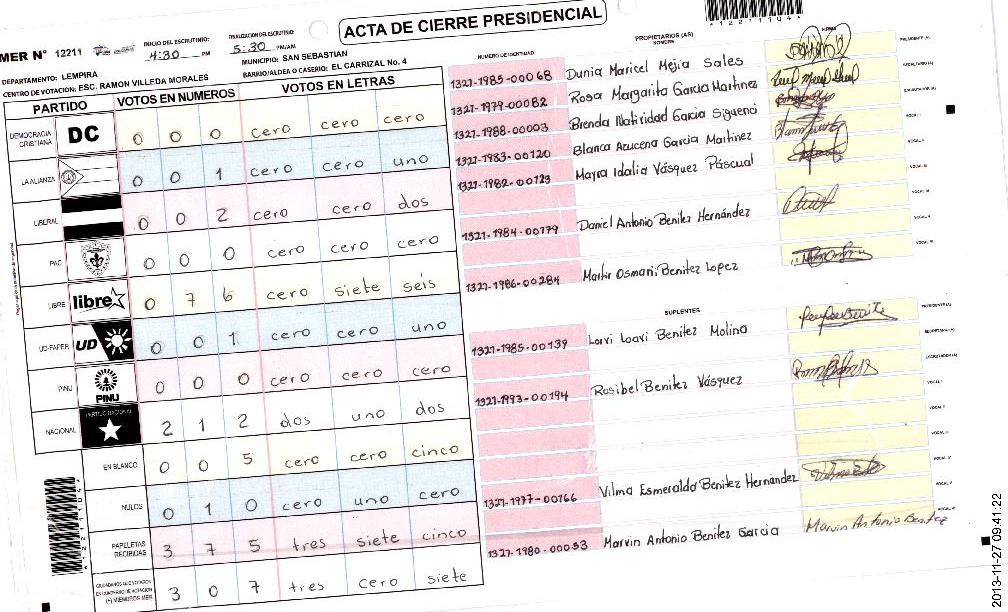 ACTA DE CIERRE PRESIDENCIAL
MER N° 12211
INICIO DEL ESCRUTINIO: 4:30 PM
FINALIZACION DE ESCRUTINIO: 5:30 PM/AM
DEPARTAMENTO: LEMPIRA
MUNICIPIO: SAN SEBASTIAN
CENTRO DE VOTACION: ESC. RAMON VILLEDA MORALES
BARRIO/ALDEA O CASERIO: EL CARRIZAL No. 4
PARTIDO VOTOS EN NUMEROS VOTOS EN LETRAS
DEMOCRACIA CRISTIANA DC 0 0 0 cero cero cero
LA ALIANZA 0 0 1 cero cero uno
LIBERAL 0 0 2 cero cero dos
PAC 0 0 0 cero cero cero
LIBRE libre 0 7 6 cero siete seis
UD-FAPER UD 0 0 1 cero cero uno
PINU PINU 0 0 0 cero cero cero
NACIONAL PARTIDO NACIONAL 2 1 2 dos uno dos
EN BLANCO 0 0 5 cero cero cinco
NULOS 0 1 0 cero uno cero
PAPELETAS RECIBIDAS 3 7 5 tres siete cinco
CIUDADANOS QUE VOTARON
EN CUADERNO DE VOTACION
(+) MIEMBROS MER 3 0 7 tres cero siete
NUMERO DE IDENTIDAD PROPIETARIOS (AS) NOMBRE FIRMA
1327-1985-00068 Dunia Maricel Mejia Sales
1327-1979-00082 Rosa Margarita Garcia Martinez
1327-1988-00003 Brenda Natividad Garcia Sigueno
1327-1983-00120 Blanca Azucena Garcia Martinez
1327-1982-00123 Mayra Idalia Vásquez Páscual
1327-1984-00179 Daniel Antonio Benitez Hernández
1327-1986-00284 Martir Osmani Benitez Lopez
SUPLENTES
1327-1985-00139 Lorvi Loavi Benitez Molina
1327-1993-00194 Rosibel Benitez Vásquez
1327-1977-00166 Vilma Esmeralda Benitez Hernández
1327-1980-00053 Marvin Antonio Benitez Garcia Marvin Antonio Benitez
2013-11-27 09:41:22